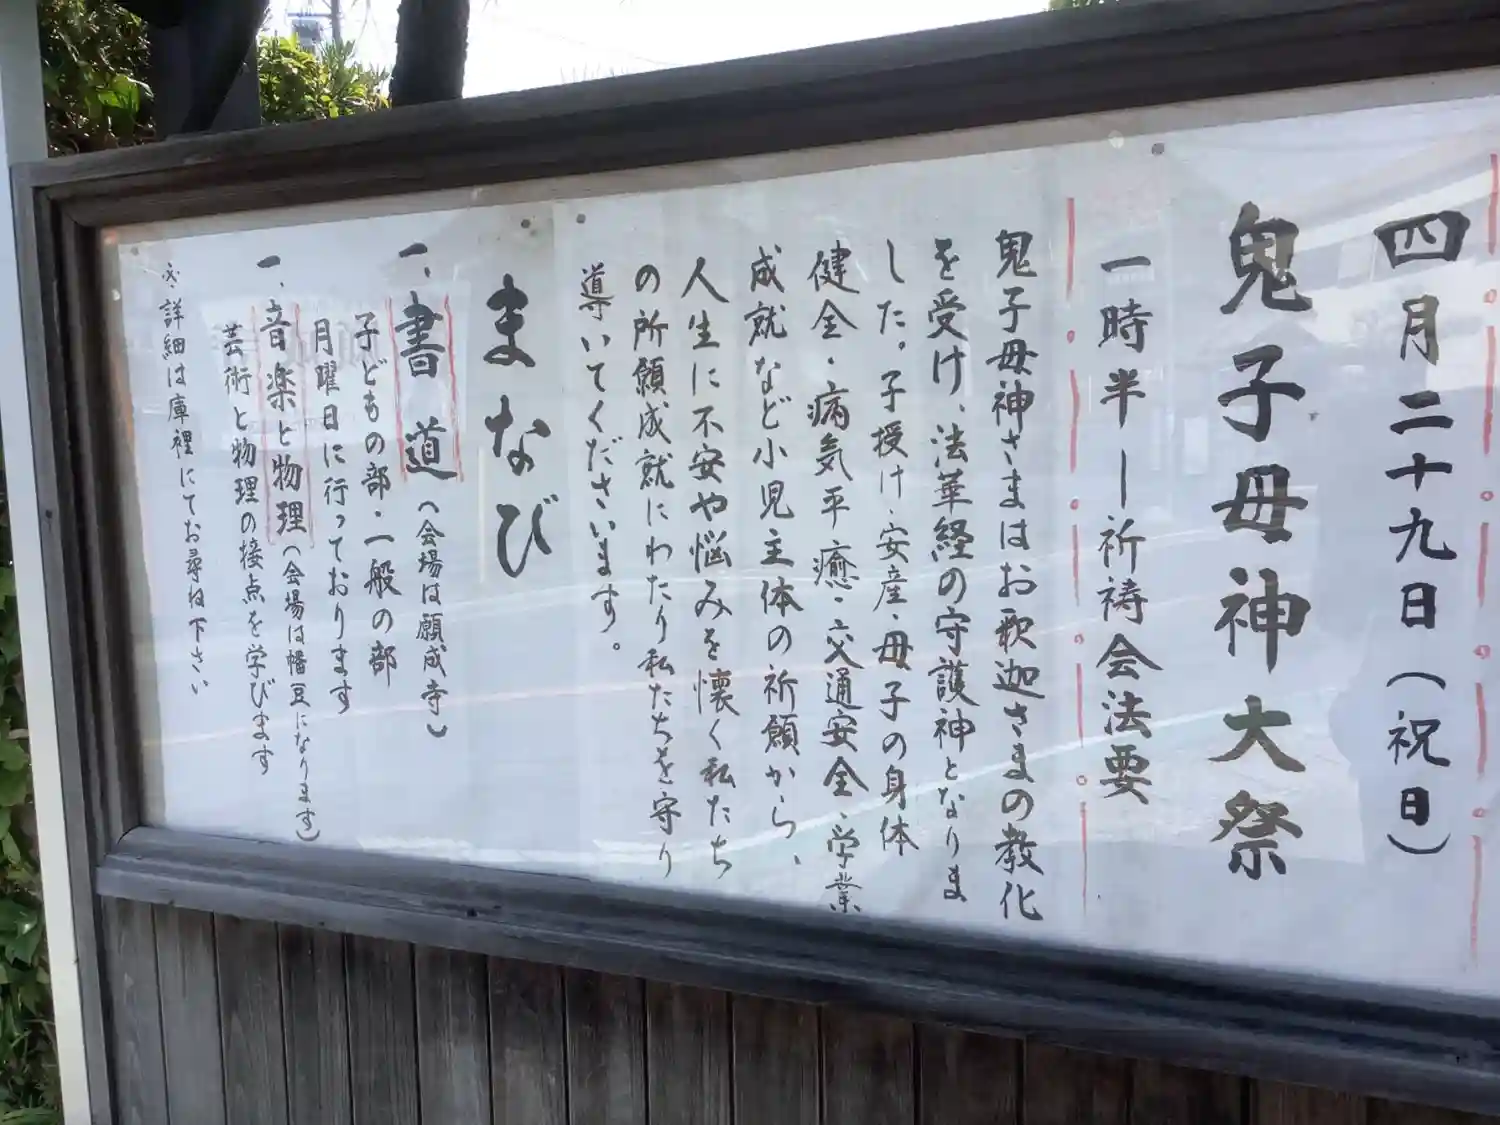 四月二十九日(祝日)
鬼子母神大祭
一時半ー祈祷会法要
鬼子母神さまはお釈迦さまの教化
を受け、法華経の守護神となりま
した。子授け・安産・母子の身体
健全・病気平癒・交通安全・学業
成就など小児主体の祈願から、
人生に不安や悩みを懐く私たち
の所願成就にわたり私たちを守り
導いてくださいます。
まなび
一、書道(会場は願成寺)
子どもの部・一般の部
月曜日に行っております
一、音楽と物理(会場は幡豆になります)
芸術と物理の接点を学びます
※詳細は庫裡にてお尋ね下さい